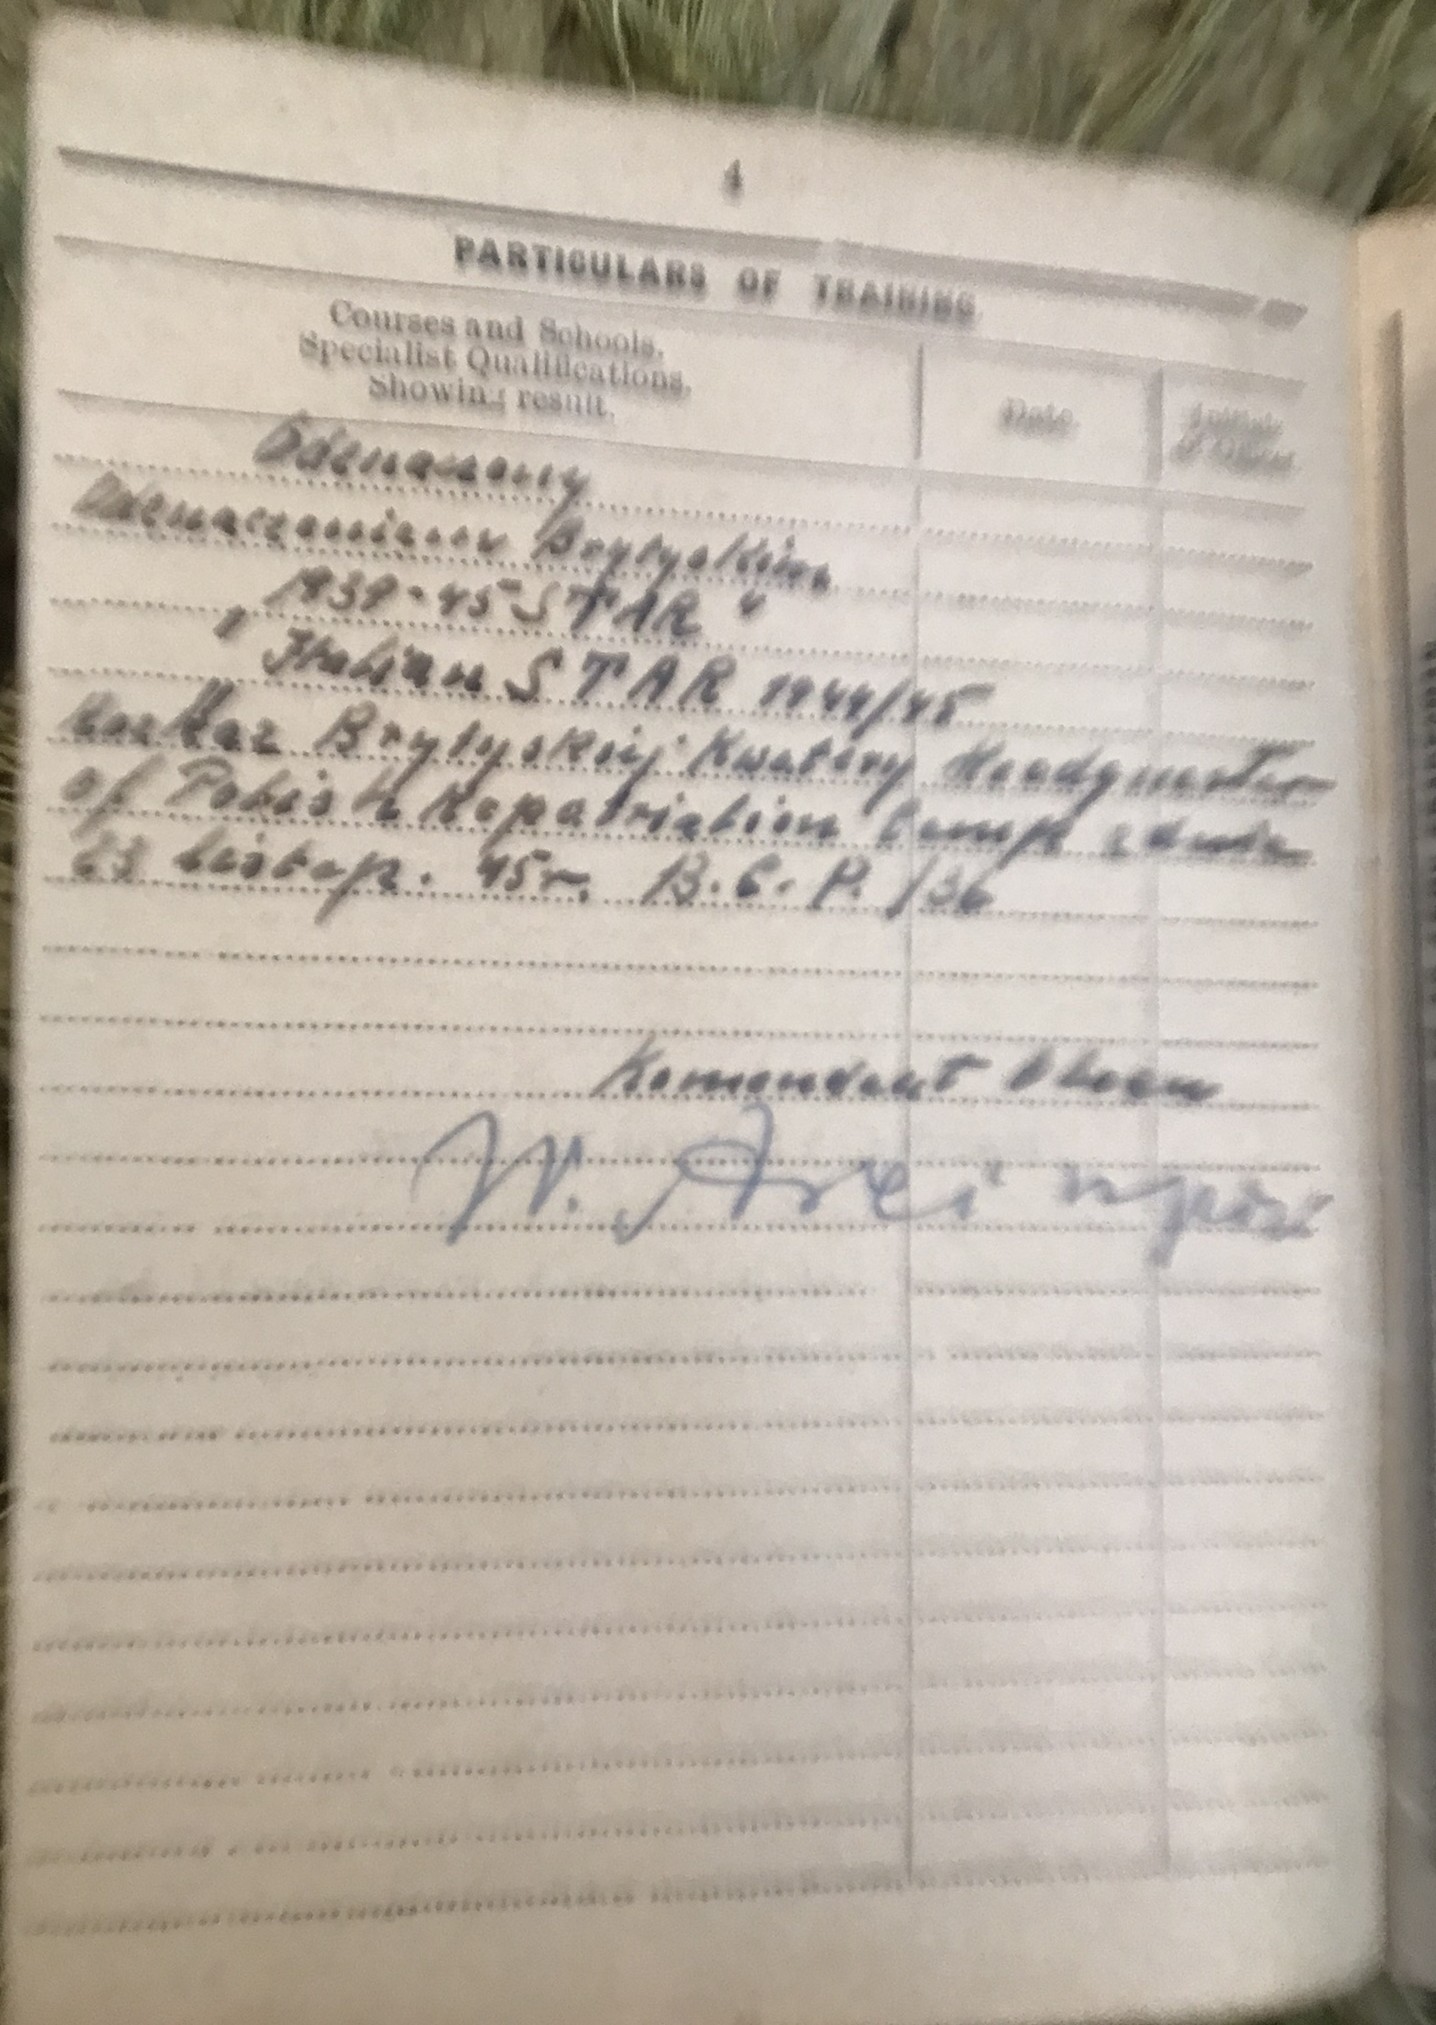 4
PARTICULARS OF TRAINING
Courses and Schools,
Specialist Qualifications,
Showing result.
Date
Initials of Officer
Odznaczony
Odznaczeniem Brytyskim
1939-45 STAR "
" Italian STAR 1944/45
Rozkaz Brytyskiej Kwatery Headquarter
of Polish Repatriation Camp z dnia
23 listop. 45r. B.C.P./36
Komendant Obozu
W.